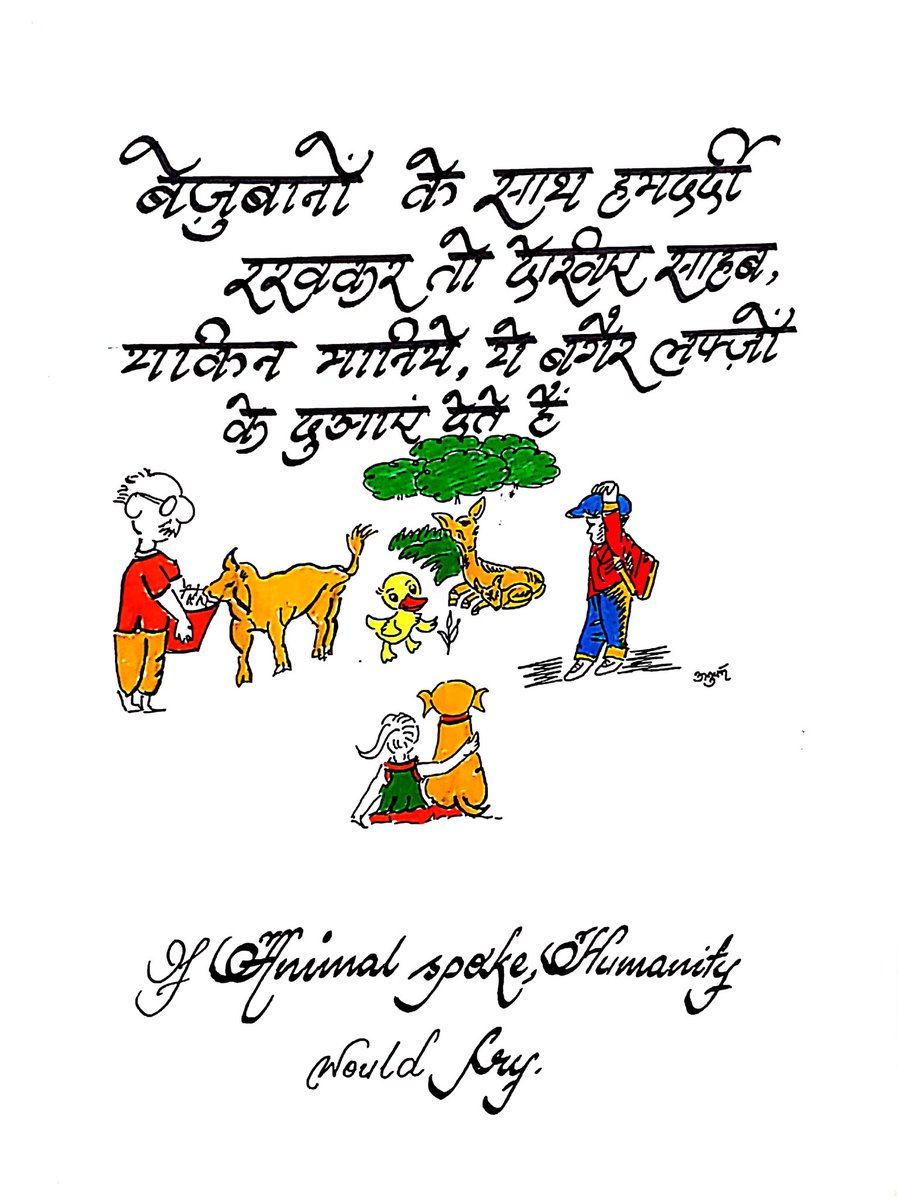 बेज़ुबानों के साथ हमदर्दी
रखकर तो देखिए साहब,
याकिन मानिये, ये बगैर लफ्ज़ों
के दुआएं देते हैं
If Animal spoke, Humanity
would Cry.